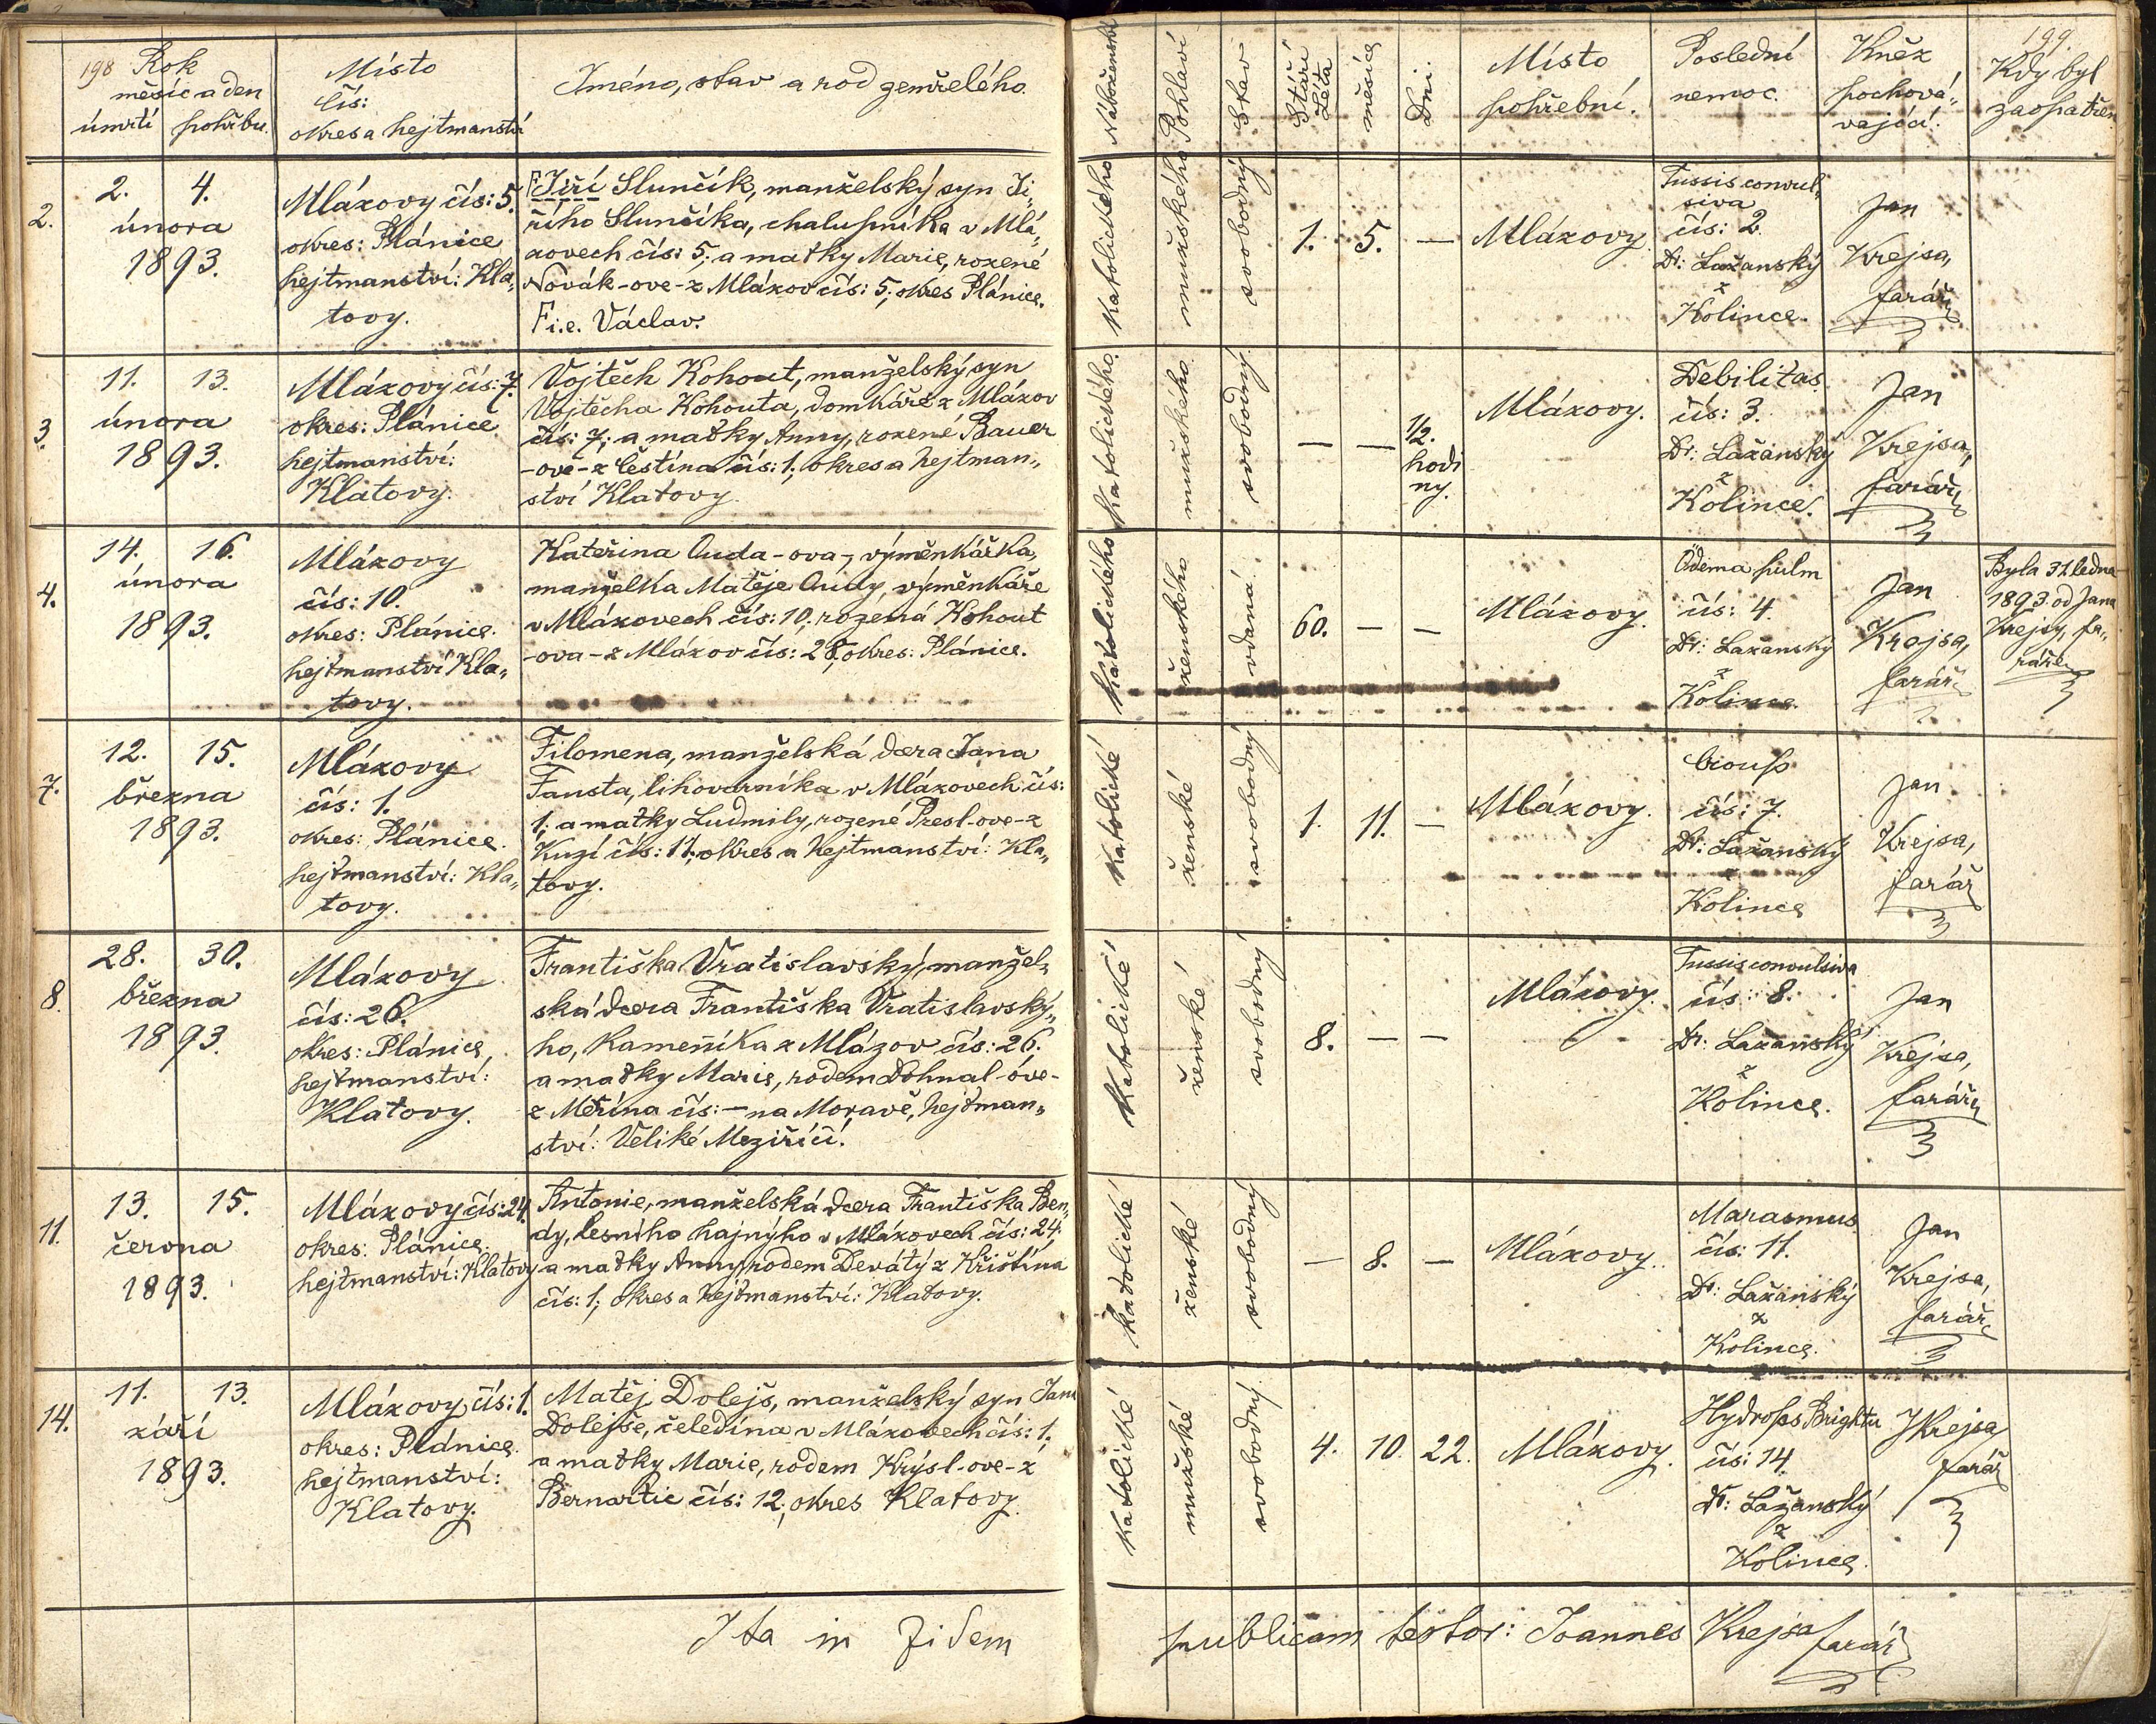 198 Rok
měsíc a den
úmrtí pohřbu
Místo
čís:
okres a hejtmanství
Jméno, stav a rod zemřelého.
Náboženství
Pohlaví
Stav
Stáří
Léta
měsíce
Dni.
Místo
pohřební.
Poslední
nemoc.
Kněz
pochová„
vající.
199.
Kdy byl
zaopatřen
2.
2. 4.
února
1893.
Mlázovy čís: 5.
okres: Plánice
hejtmanství: Kla„
tovy.
F Jiří Slunčík, manželský syn Ji„
řího Slunčíka, chalupníka v Mlá„
zovech čís: 5; a matky Marie, rozené
Novák-ove-z Mlázov čís: 5; okres Plánice.
F i.e. Václav.
katolického
mužského
svobodný
1. 5. —
Mlázovy.
Tussis convul„
siva
čís: 2.
Dr: Lažanský
z
Kolince.
Jan
Krejsa,
farář
3.
11. 13.
února
1893.
Mlázovy čís: 7.
okres: Plánice
hejtmanství:
Klatovy.
Vojtěch Kohout, manželský syn
Vojtěcha Kohouta, domkáře z Mlázov
čís: 7; a matky Anny, rozené Bauer
-ove-z Čestína čís: 1; okres a hejtman„
ství Klatovy.
katolického
mužského
svobodný
— — 1/2.
hodi
ny.
Mlázovy.
Debilitas
čís: 3.
Dr: Lažanský
z
Kolince.
Jan
Krejsa,
farář
4.
14. 16.
února
1893.
Mlázovy
čís: 10.
okres: Plánice.
hejtmanství Kla„
tovy.
Kateřina Ouda-ova-, výměnkářka,
manželka Matěje Oudy, výměnkáře
v Mlázovech čís: 10; rozená Kohout
-ova-z Mlázov čís: 28; okres: Plánice.
katolického
ženského
vdaná
60. — —
Mlázovy.
Ödema pulm
čís: 4.
Dr: Lažanský
z
Kolince.
Jan
Krejsa,
farář
Byla 31. ledna
1893. od Jana
Krejsy, fa„
ráře
7.
12. 15.
března
1893.
Mlázovy
čís: 1.
okres: Plánice.
hejtmanství: Kla„
tovy.
Filomena, manželská dcera Jana
Fausta, lihovarníka v Mlázovech čís:
1; a matky Ludmily, rozené Presl-ove-z
Kuzí čís: 11; okres a hejtmanství: Kla„
tovy.
katolické
ženské
svobodný
1. 11. —
Mlázovy.
čís: 7.
Dr: Lažanský
z
Kolince
Jan
Krejsa,
farář
8.
28. 30.
března
1893.
Mlázovy
čís: 26.
okres: Plánice,
hejtmanství:
Klatovy.
Františka Vratislavský, manžel„
ská dcera Františka Vratislavský„
ho, Kameníka z Mlázov čís: 26.
a matky Marie, rodem Dohnal-ove-
z Měřína čís: — na Moravě, hejtman„
ství: Veliké Meziříčí.
katolické
ženské
svobodný
8. — —
Mlázovy.
Tussis convulsiva
čís: 8.
Dr: Lažanský
z
Kolince.
Jan
Krejsa,
farář
11.
13. 15.
června
1893.
Mlázovy čís: 24.
okres: Plánice.
hejtmanství: Klatovy
Antonie, manželská dcera Františka Ben„
dy, lesního hajnýho v Mlázovech čís: 24;
a matky Anny, rodem Devátý z Křištína
čís: 1; okres a hejtmanství: Klatovy.
katolické
ženské
svobodný
— 8. —
Mlázovy.
Marasmus
čís: 11.
Dr: Lažanský
z
Kolince.
Jan
Krejsa,
farář
14.
11. 13.
září
1893.
Mlázovy čís: 1.
okres: Plánice.
hejtmanství:
Klatovy.
Matěj Dolejš, manželský syn Jana
Dolejše, čeledína v Mlázovech čís: 1.
a matky Marie, rodem Krýsl-ove-z
Bernartic čís: 12; okres Klatovy.
katolické
mužské
svobodný
4. 10. 22.
Mlázovy.
Hydrops Brightu
čís: 14.
Dr: Lažanský
z
Kolince.
JKrejsa
farář
Ita in fidem publicam testor: Joannes Krejsa farář